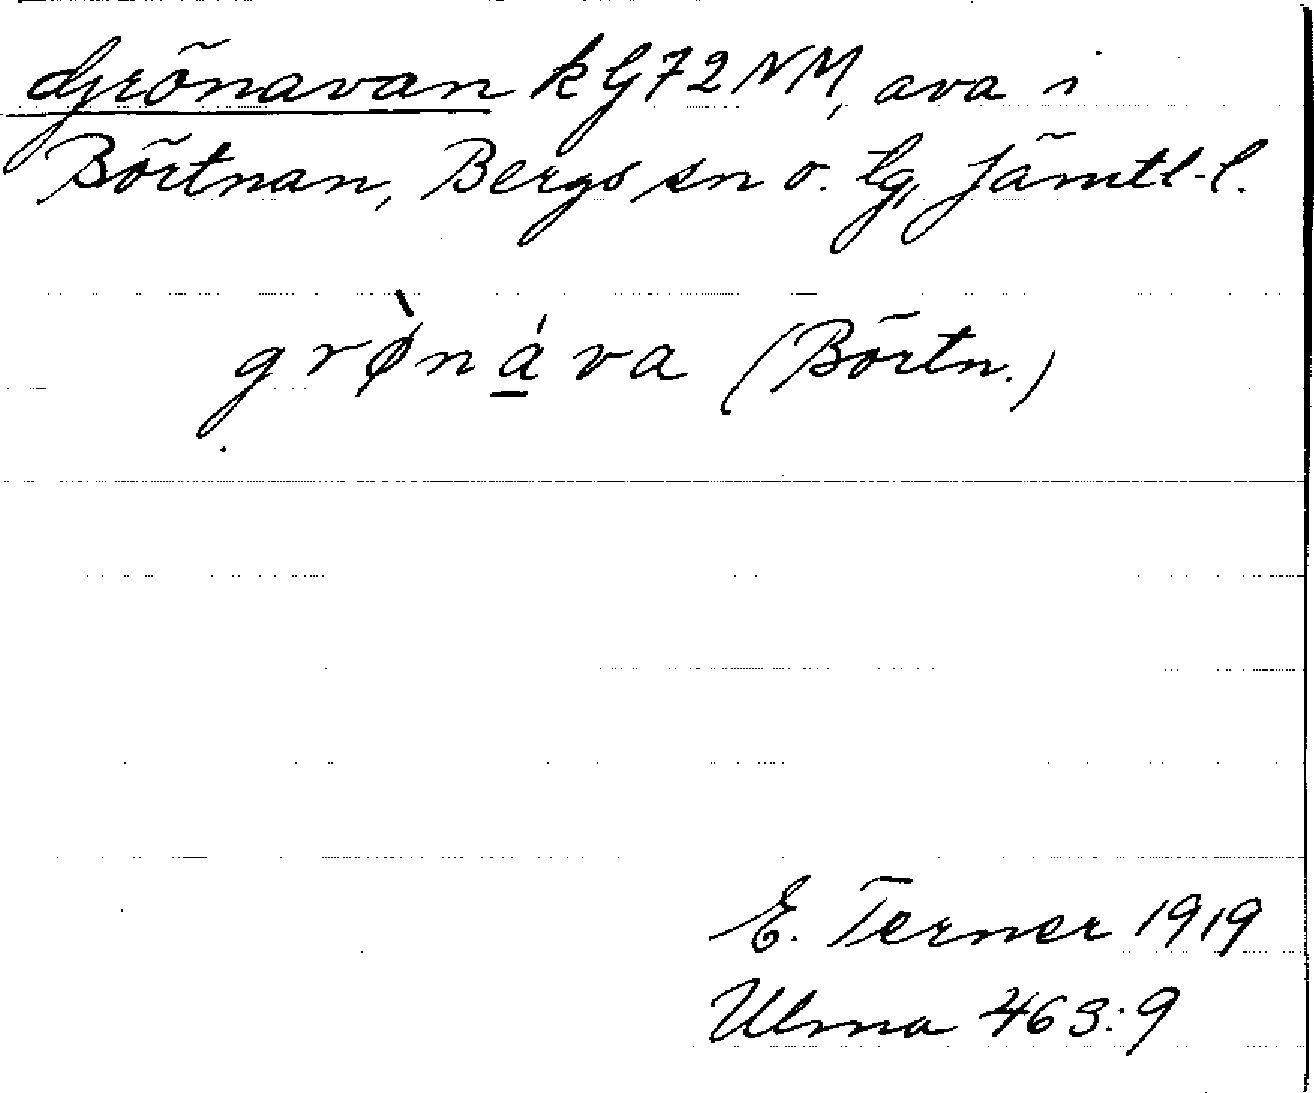 Grönavan k G72NM, ava i
Börtnan, Bergs sn o. tg, Jämtl. l.
grø̀náva (Börtn.)
E. Terner 1919
Ulma 463:9